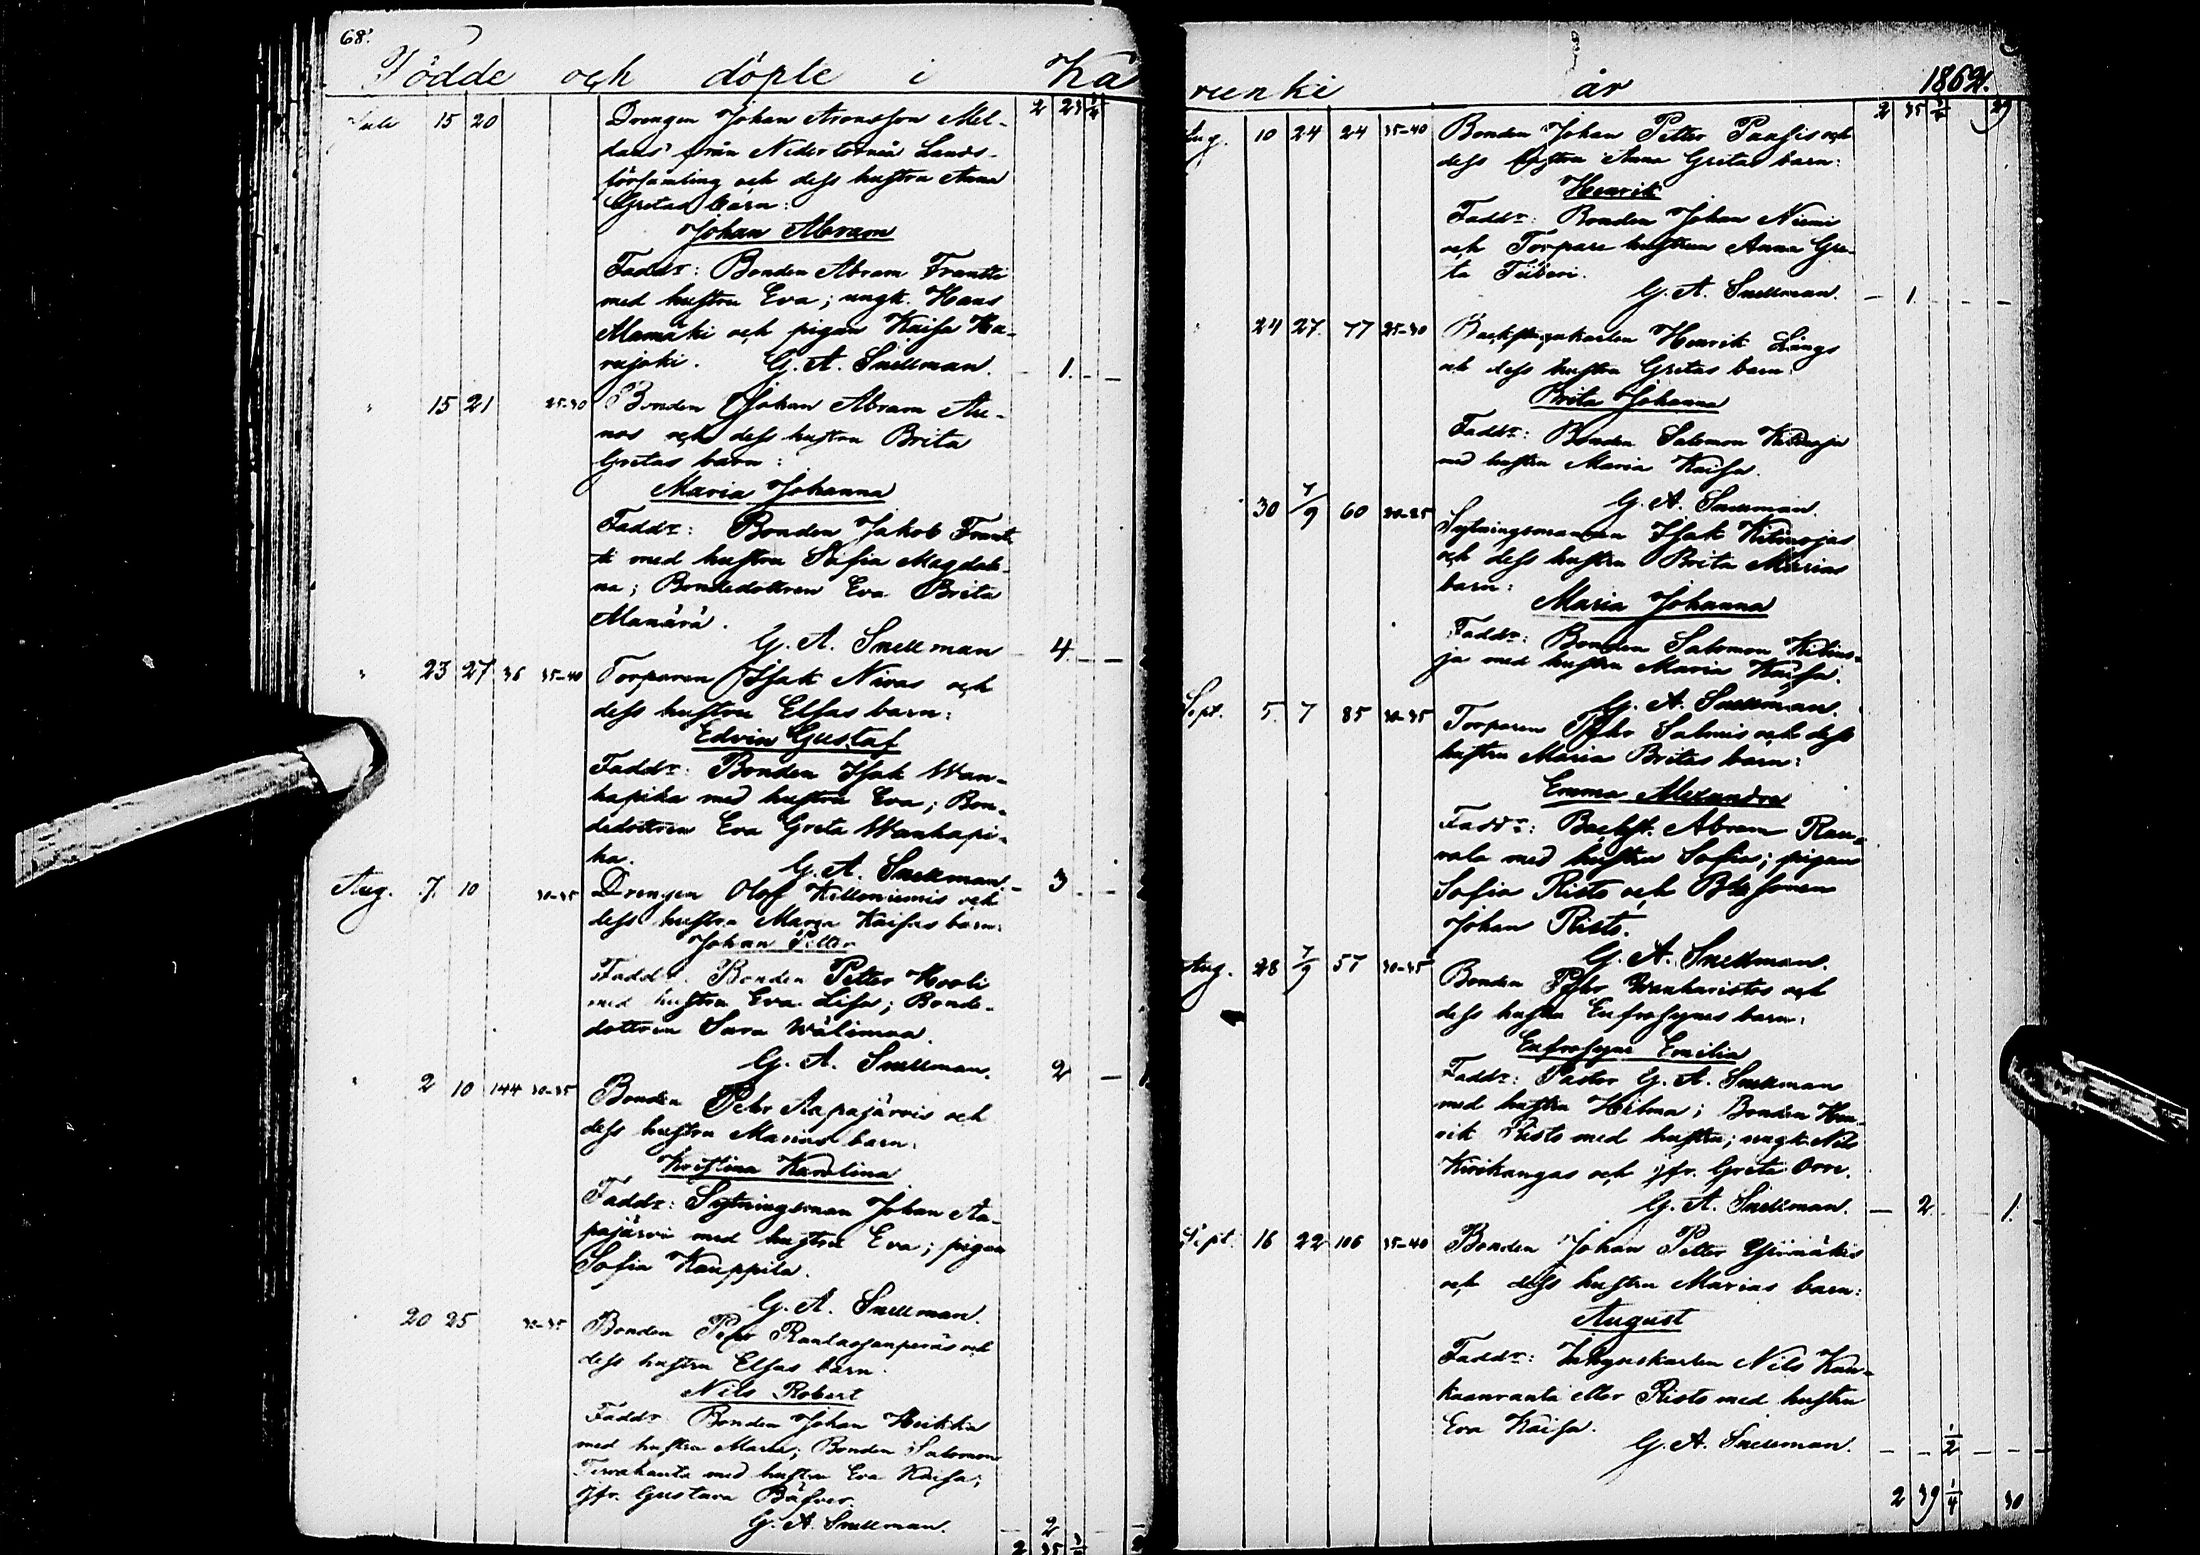 68.
Födde och döpte i Ka
Juli 15 20 Drengen Johan Aronsson Mel- 2 23 1/4
daus' från Nedertorneå Lands-
församling och dess hustru Anna
Gretas barn:
Johan Abram
Faddr: Bonden Abram Frantti
med hustru Eva; ungk. Hans
Alamäki och pigan Kaisa Ka-
rujoki. G. A. Snellman. - 1. - -
" 15 21 25-30 Bonden Johan Abram Au-
nos och dess hustru Brita
Gretas barn:
Maria Johanna
Faddr: Bonden Jakob Frant-
ti med hustru Sofia Magdale-
na; Bondedottren Eva Brita
Alanärä.
G. A. Snellman - 4. - -
" 23 27 36 35-40 Torparen Isak Nivas och
dess hustru Elsas barn:
Edvin Gustaf
Faddr: Bonden Isak Wan-
hapiha med hustru Eva; Bon-
dedottren Eva Greta Wanhapi-
ha.
G. A. Snellman. - 3 - -
Aug. 7. 10 30-35 Drengen Olof Killoniemis och
dess hustru Maria Kaisas barn:
Johan Petter
Faddr. Bonden Petter Hooli
med hustru Eva Lisa; Bonde-
dottren Sara Wälimaa.
G. A. Snellman. 2 -
" 2 10 144 30-35 Bonden Pehr Aapajärvis och
dess hustru Marias barn:
Kristina Karolina
Faddr: Sytningsman Johan Aa-
pajärvi med hustru Eva; pigan
Sofia Kauppila.
G. A. Snellman.
20 25 30-35 Bonden Pehr Rantasjanperäs och
dess hustru Elsas barn.
Nils Robert
Faddr. Bonden Johan Heikka
med hustru Maria; Bonden Salomon
Tervahauta med hustru Eva Kaisa;
jfr. Gustava Bäfver.
G. A. Snellman. - 2 -
2 35
runki år 1862.
2 35 1/4 29
Aug. 10 24 24 35-40 Bonden Johan Petter Paasis och
dess hustru Anna Gretas barn:
Henrik
Faddr: Bonden Johan Niemi
och Torpare hustrun Anna Gre-
ta Fiiberi.
G. A. Snellman. - 1. - - -
24 27. 77 25-30 Backstugukarlen Henrik Längs
och dess hustru Gretas barn:
Brita Johanna
Faddr: Bonden Salomon Kitinoja
med hustru Maria Kaisa.
G. A. Snellman.
30 7/9 60 20-25 Sytningsmannen Isak Kitinojas
och dess hustru Brita Marias
barn:
Maria Johanna
Faddr: Bonden Salomon Kitino-
ja med hustru Maria Kaisa.
G. A. Snellman.
Sept. 5. 7 85 30-35 Torparen Pehr Salmis och dess
hustru Maria Britas barn:
Emma Alexandra
Faddr: Backst. Abram Rau-
vala med hustru Sofia; pigan
Sofia Risto och
Johan Risto.
G. A. Snellman.
Aug. 28 7/9 57 30-35 Bonden Pehr Wanharistos och
dess hustru Eufrosynes barn:
Eufrosyne Emilia
Faddr: Pastor G. A. Snellman
med hustru Hilma; Bonden Hen-
rik Risto med hustru; ungk. Nils
Kirikangas och jfr. Greta Orre.
G. A. Snellman. - 2. 1.
Sept. 16 22 106 35-40 Bonden Johan Petter Yimäkis
och dess hustru Marias barn:
August
Faddr: Inhyseskarlen Nils Kan-
kaanranta eller Risto med hustru
Eva Kaisa.
G. A. Snellman. - - 1/2 - - -
2 39 1/4 30